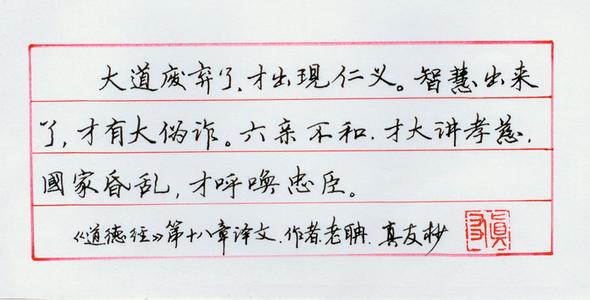 大道废弃了,才出現仁义。智慧出来
了,才有大伪诈。六亲不和.才大讲孝慈,
國家昏乱,才呼唤忠臣。
《道德经》第十八章译文.作者老聃.真友抄